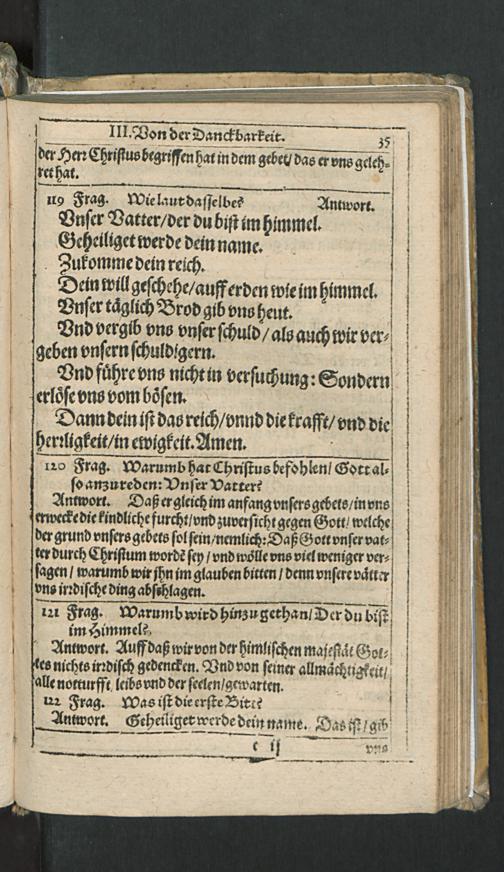 III. Von der Danckbarkeit.
35
der Herr Christus begriffen hat in dem gebet/ das er vns geleh-
ret hat.
119 Frag. Wie laut dasselbe? Antwort.
Vnser Vatter/der du bist im himmel.
Geheiliget werde dein name.
Zukomme dein reich.
Dein will geschehe/auff erden wie im himmel.
Vnser täglich Brod gib vns heut.
Vnd vergib vns vnser schuld/ als auch wir ver-
geben vnsern schuldigern.
Vnd führe vns nicht in versuchung: Sondern
erlöse vns vom bösen.
Dann dein ist das reich/vnnd die krafft/ vnd die
herrligkeit/in ewigkeit. Amen.
120 Frag. Warumb hat Christus befohlen/ Gott al-
so anzureden: Vnser Vatter?
Antwort. Daß er gleich im anfang vnsers gebets/in vns
erwecke die kindliche furcht/vnd zuversicht gegen Gott/ welche
der grund vnsers gebets sol sein/nemlich: Daß Gott vnser vat-
ter durch Christum wordē sey/ vnd wölle vns viel weniger ver-
sagen/ warumb wir jhn im glauben bitten/ denn vnsere vätter
vns irrdische ding abschlagen.
121 Frag. Warumb wird hinzu gethan/ Der du bist
im Himmel?
Antwort. Auff daß wir von der himlischen majestät Got-
tes nichts irrdisch gedencken. Vnd von seiner allmächtigkeit/
alle notturfft/ leibs vnd der seelen/gewarten.
122 Frag. Was ist die erste Bitt?
Antwort. Geheiliget werde dein name. Das ist/ gib
c ij
vns